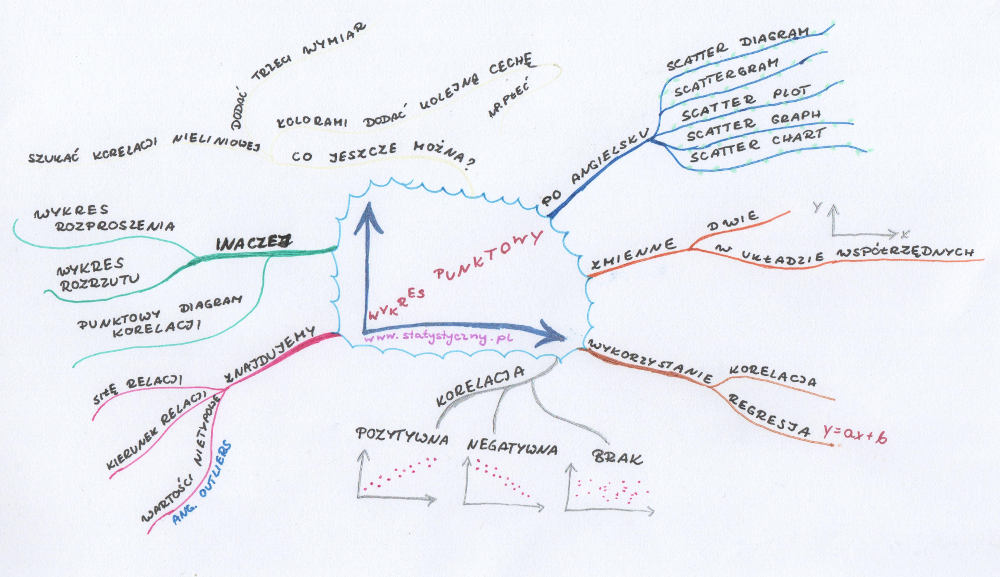 WYKRES PUNKTOWY
www.statystyczny.pl
PO ANGIELSKU
SCATTER DIAGRAM
SCATTERGRAM
SCATTER PLOT
SCATTER GRAPH
SCATTER CHART
ZMIENNE
DWIE
W UKŁADZIE WSPÓŁRZĘDNYCH
Y
X
WYKORZYSTANIE
KORELACJA
REGRESJA
y=ax+b
KORELACJA
POZYTYWNA
NEGATYWNA
BRAK
ZNAJDUJEMY
SIŁĘ RELACJI
KIERUNEK RELACJI
WARTOŚCI NIETYPOWE
ANG. OUTLIERS
INACZEJ
WYKRES
ROZPROSZENIA
WYKRES
ROZRZUTU
PUNKTOWY DIAGRAM
KORELACJI
CO JESZCZE MOŻNA?
SZUKAĆ KORELACJI NIELINIOWEJ
DODAĆ TRZECI WYMIAR
KOLORAMI DODAĆ KOLEJNĄ CECHĘ
NP. PŁEĆ